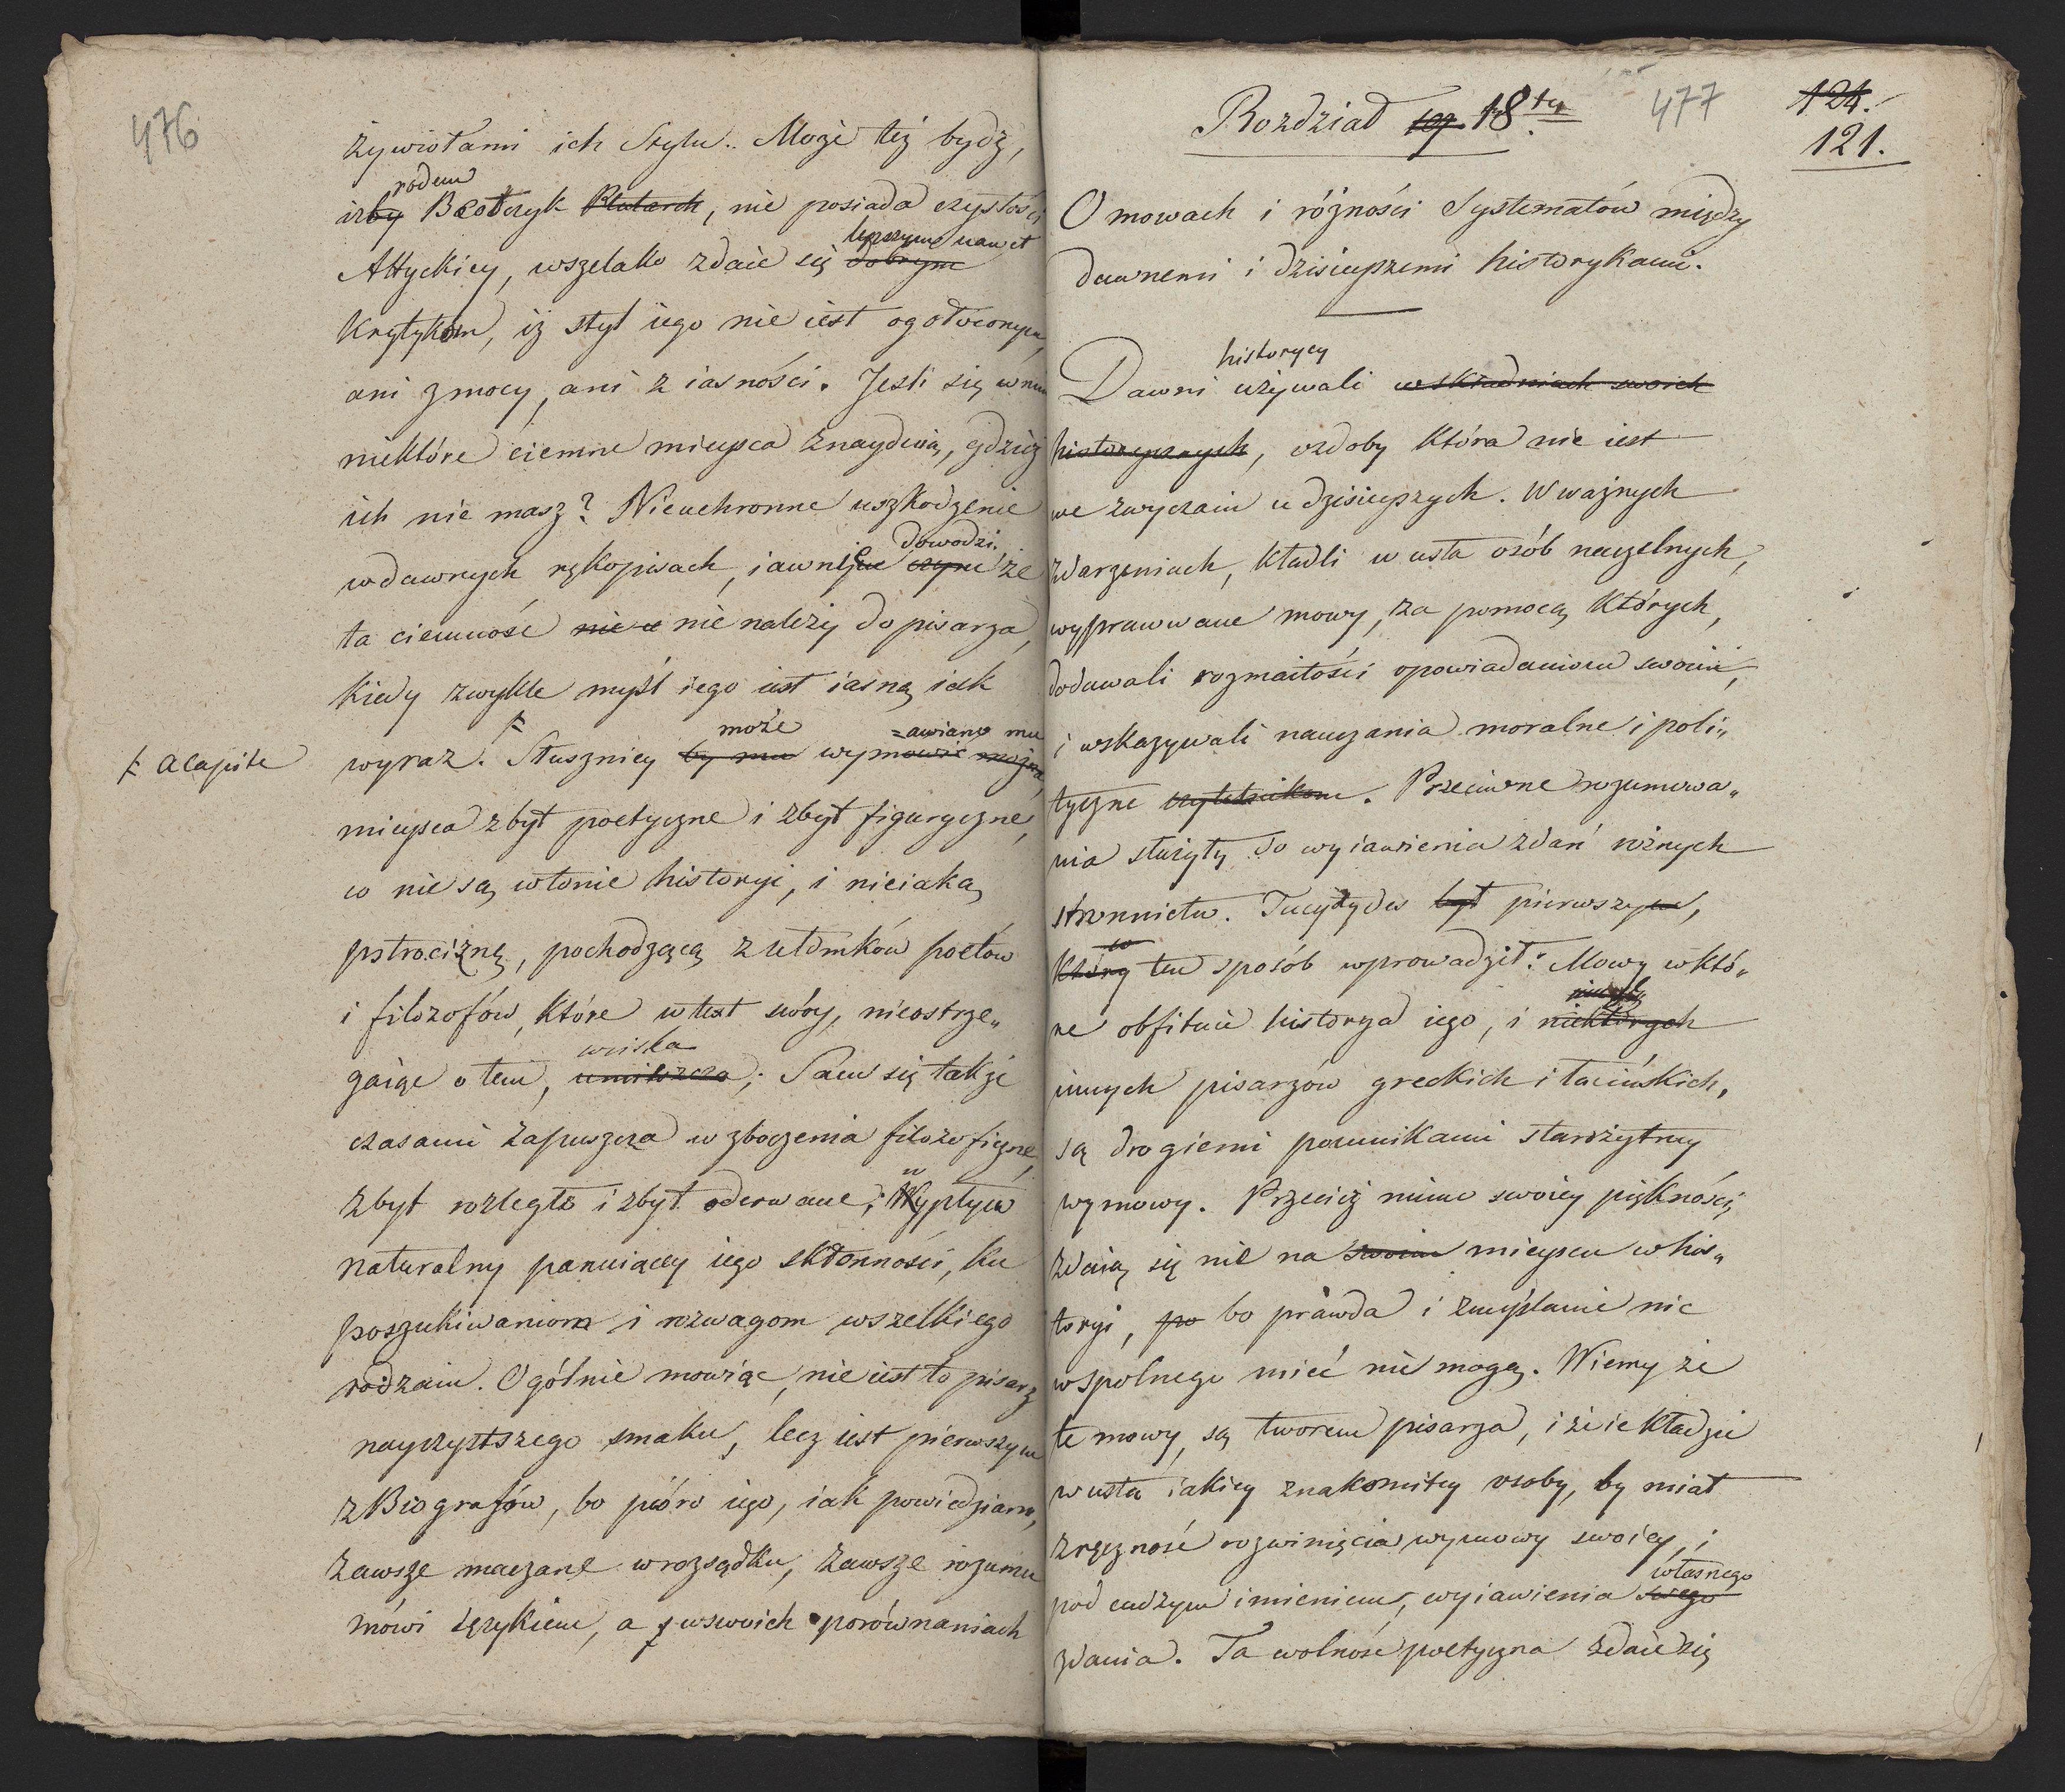 476
żywiołami ich Stylu. Może też bydź,
rodem
iżby Beotczyk Plutarch, nie posiada czystości
lepszym nawet
Attyckiey, wszelako zdaie się dobrym
Krytykom, iż styl iego nie iest ogołoconym,
ani z mocy, ani z iasności. Jeśli się w nim
niektóre ciemne mieysca znayduią, gdzież
ich nie masz? Nieuchronne uszkodzenie
dowodzi
w dawnych rękopisach, iawnie czyni że
ta ciemność nie należy do pisarza,
kiedy zwykle myśl iego iest iasną iak
może =awiano mu
⨍ acapite wyraz. ⨍ Słuszniey by mu wymowić można,
mieysca zbyt poetyczne i zbyt figuryczne,
co nie są w tonie historyi, i nieiaką
pstrociznę, pochodzącą z ułomków poetów
i filozofów, które w text swóy, nieostrze„
wciska
gaiąc o tem, umieszcza; Sam się także
czasami zapuszcza w zboczenia filozoficzne,
zbyt rozległe i zbyt oderwane; Wypływ
naturalny panuiącey iego skłonności, ku
poszukiwaniom i rozwagom wszelkiego
rodzaiu. Ogólnie mowiąc, nie iest to pisarz
nayczystszego smaku, lecz iest pierwszym
z Biografów, bo pióro iego, iak powiedziano,
zawsze maczane w rozsądku, zawsze rozumu
mówi ięzykiem, a w swoich porównaniach
477
124.
121.
Rozdział 18ty
O mowach i różności Systematów między
dawnemi i dzisieyszemi historykami.
historycy
Dawni używali w składniach swoich
historycznych, ozdoby która nie iest
we zwyczaiu u dzisieyszych. W ważnych
zdarzeniach, kładli w usta osób naczelnych,
wyprawwane mowy, za pomocą których,
dodawali rozmaitości opowiadaniom swoim,
i wskazywali nauczania moralne i poli„
tyczne czytelnikom. Przeciwne rozumowa„
nia służyły do wyiawienia zdań różnych
stronnictw. Tucydydes był pierwszym,
co
który ten sposób wprowadził. Mowy w któ„
re obfituie historya iego, i niektórych
innych pisarzów greckich i łacińskich,
są drogiemi pomnikami starożytney
wymowy. Przecież mimo swoiey piękności,
zdaią się nie na swoim mieyscu w his„
toryi, po bo prawda i zmyślanie nic
wspolnego mieć nie mogą. Wiemy że
te mowy, są tworem pisarza, i że ie kładzie
w usta iakiey znakomitey osoby, by miał
zręczność rozwinięcia wymowy swoiey, i
własnego
pod cudzym imieniem, wyiawienia swego
zdania. Ta wolność poetyczna zdaie się